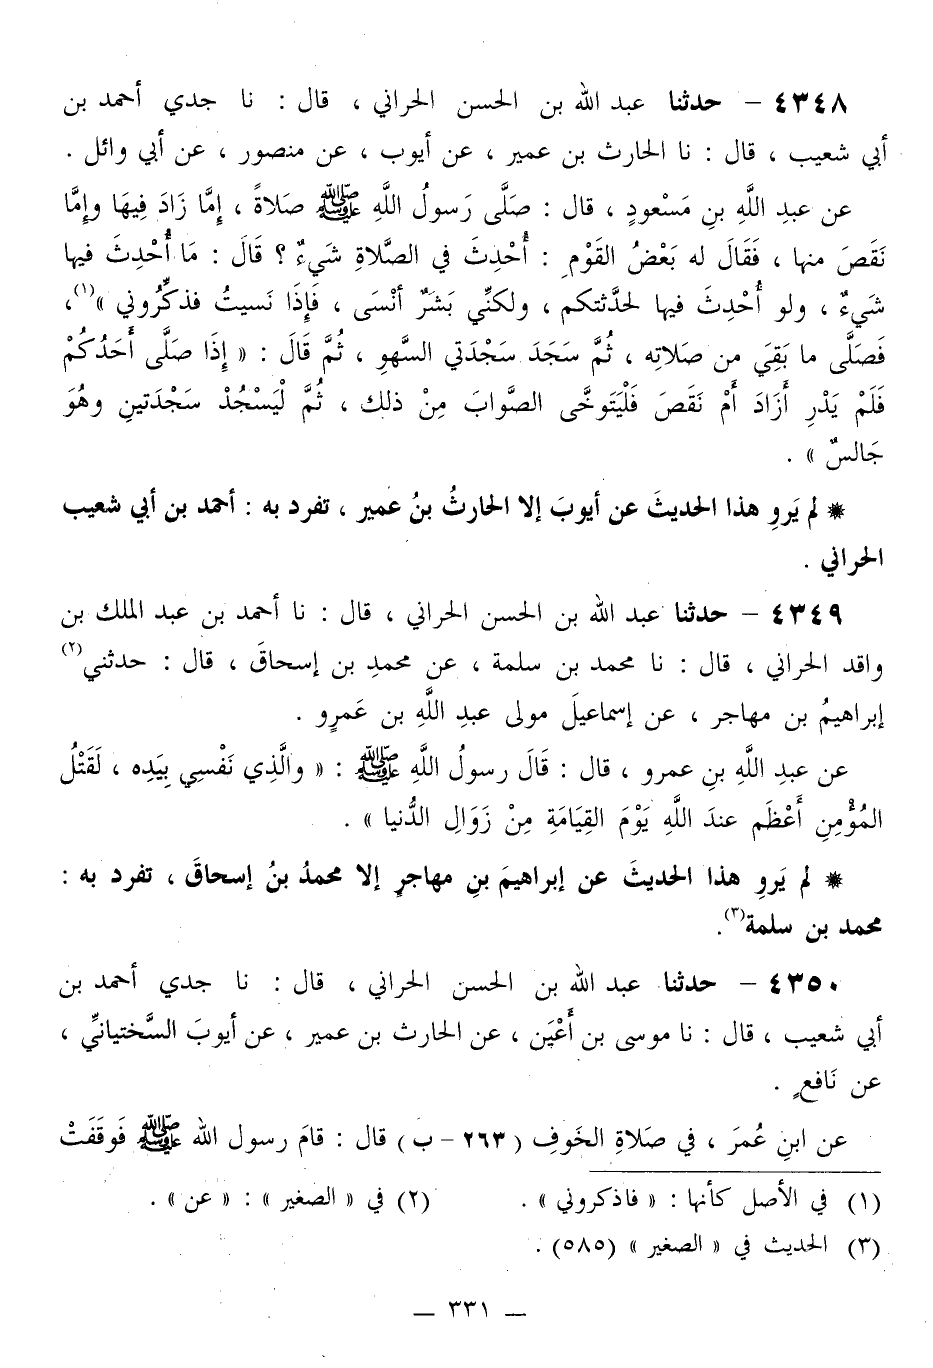 ٤٣٤٨ – حدثنا عبد الله بن الحسن الحراني ، قال : نا جدي أحمد بن
أبي شعيب ، قال : نا الحارث بن عمير ، عن أيوب ، عن منصور ، عن أبي وائل .
عن عبدِ اللَّهِ بنِ مَسْعودٍ ، قال : صَلَّى رَسولُ اللَّهِ ﷺ صَلاةً ، إمَّا زَادَ فِيهَا وإمَّا
نَقَصَ منها ، فَقَالَ له بَعْضُ القَوْمِ : أُحْدِثَ في الصَّلاةِ شَيءٌ ؟ قَالَ : مَا أُحْدِثَ فيها
شَيءٌ ، ولو أُحْدِثَ فيها لحدَّثتكم ، ولكنِّي بَشَرٌ أنْسَى ، فَإِذَا نَسيتُ فذكِّروني »(١)،
فَصَلَّى ما بَقِيَ من صَلاتِه ، ثُمَّ سَجَدَ سَجْدَتي السَّهوِ ، ثُمَّ قَالَ : « إِذَا صَلَّى أَحَدُكُمْ
فَلَمْ يَدْرِ أَزَادَ أَمْ نَقَصَ فَلْيَتَوخَّى الصَّوابَ مِنْ ذلك ، ثُمَّ لْيَسْجُدْ سَجْدَتينِ وهُوَ
جَالسٌ » .
* لم يَروِ هذا الحديثَ عن أيوبَ إلا الحارثُ بنُ عمير ، تفرد به : أحمد بن أبي شعيب
الحراني .
٤٣٤٩ – حدثنا عبد الله بن الحسن الحراني ، قال : نا أحمد بن عبد الملك بن
واقد الحراني ، قال : نا محمد بن سلمة ، عن محمدِ بن إسحاقَ ، قال : حدثني(٢)
إبراهيمُ بن مهاجر ، عن إسماعيلَ مولى عبدِ اللَّهِ بن عَمرٍو .
عن عبدِ اللَّهِ بنِ عمرو ، قال : قَالَ رسولُ اللَّهِ ﷺ : « والَّذِي نَفْسِي بِيَدِه ، لَقَتْلُ
المُؤْمِنِ أَعْظَم عندَ اللَّهِ يَوْمَ القِيَامَةِ مِنْ زَوَالِ الدُّنيا » .
* لم يَروِ هذا الحديثَ عن إبراهيمَ بنِ مهاجرٍ إلا محمدُ بنُ إسحاقَ ، تفرد به :
محمد بن سلمة(٣).
٤٣٥٠ – حدثنا عبد الله بن الحسن الحراني ، قال : نا جدي أحمد بن
أبي شعيب ، قال : نا موسى بن أَعْيَن ، عن الحارث بن عمير ، عن أيوبَ السَّختيانيِّ ،
عن نَافعٍ .
عن ابنِ عُمرَ ، في صَلاةِ الخَوفِ ( ٢٦٣ – ب ) قال : قامَ رسول الله ﷺ فَوقَفَتْ
(١) في الأصل كأنها : « فاذكروني » . (٢) في « الصغير » : « عن » .
(٣) الحديث في « الصغير » (٥٨٥) .
— ٣٣١ —